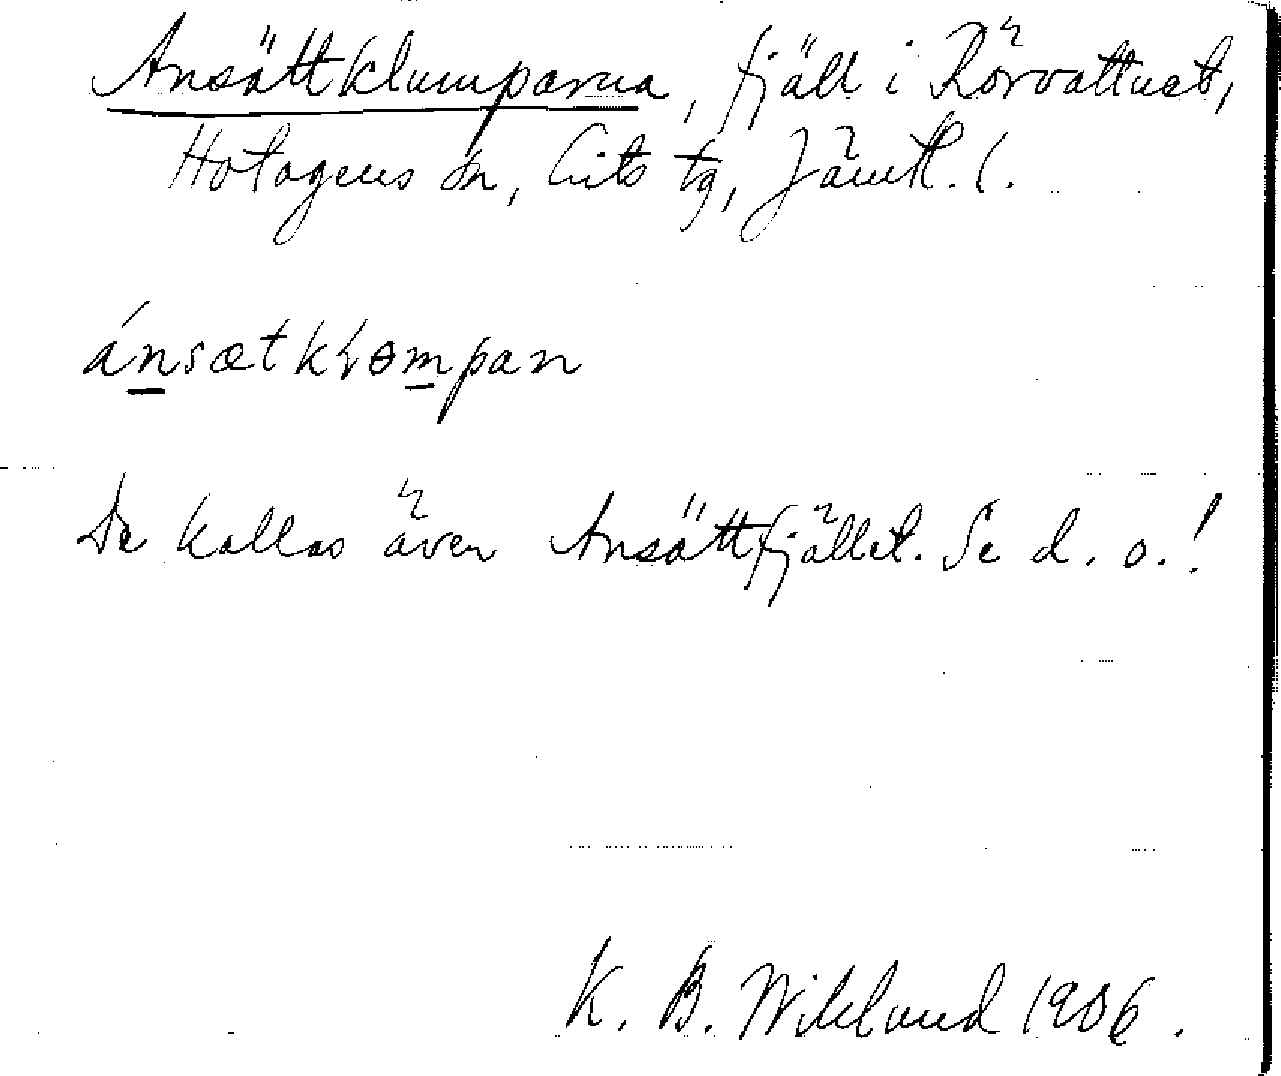 Ansättklumparna, fjäll i Rörvattnet,
Hotagens sn, Lits tg, Jämtl. l.
ánsætkłɵmpan
De kallas även Ansättfjället. Se d. o.!
K. B. Wiklund 1906.